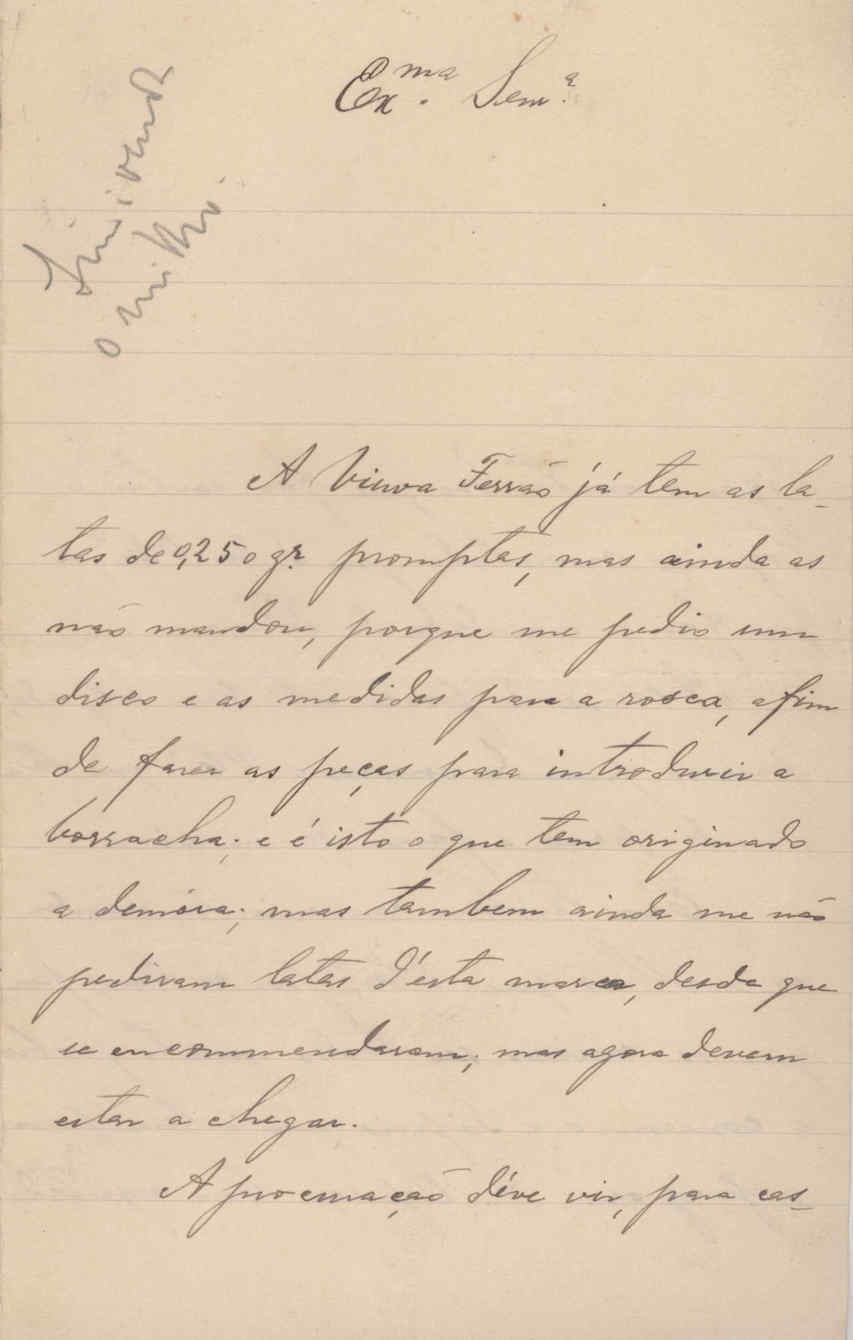 Ex.ma Senr.a
A Viuva Ferrão já tem as la-
tas de 0,250 gr. promptas, mas ainda as
não mandou, porque me pedio um
disco e as medidas para a rosca, afim
de fazer as peças para introduzir a
borracha; e é isto o que tem originado
a demóra; mas tambem ainda me não
pediram latas d'esta marca, desde que
se encommendaram; mas agora devem
estar a chegar.
A procuração déve vir, para cas-